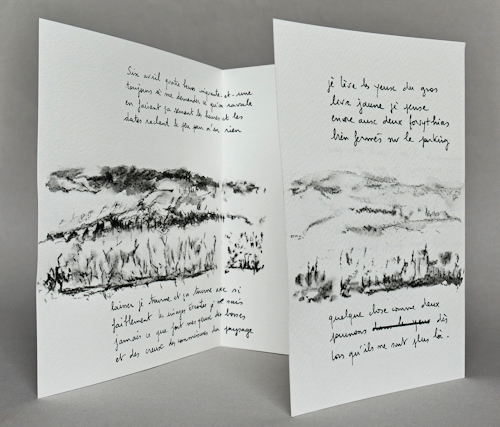 Six avril quatre heures cinquante et une
toujours à me demander si qu'on
en faisant ça revient les heures et les
dates raclent le peu pour n'en rien
laisser je tourne et ça tourne avec si
faiblement les virages étroits je ne sais
jamais ce que font mes yeux des bosses
et des creux des commissures du paysage
je lève les yeux du gros
livre jaune je pense
encore aux deux forsythias
bien fermés sur le parking
quelque chose comme deux
poumons dès
lors qu'ils ne sont plus là.